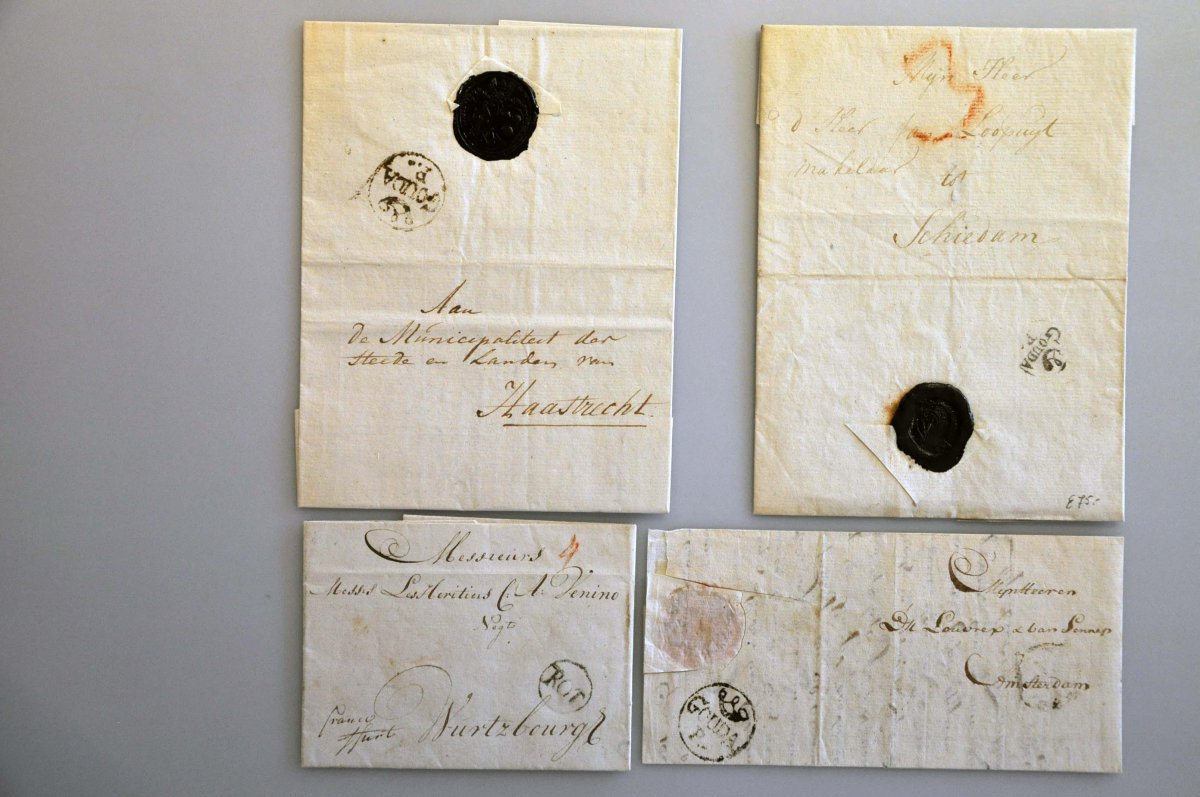 GOUDA
P..
Aan
de Municipaliteit der
Steede en Landen van
Haastrecht.
3
Mijn Heer
d Heer Jan Loopuyt
makelaar
tot
Schiedam
GOUDA
P..
£75.-
Messieurs 4
Messrs Les Heritiers C. A. Venino
Negts
ROT
franco
Wurtzbourg
MynHeeren
Louvrex & van Sennep
Amsterdam
GOUDA
P..